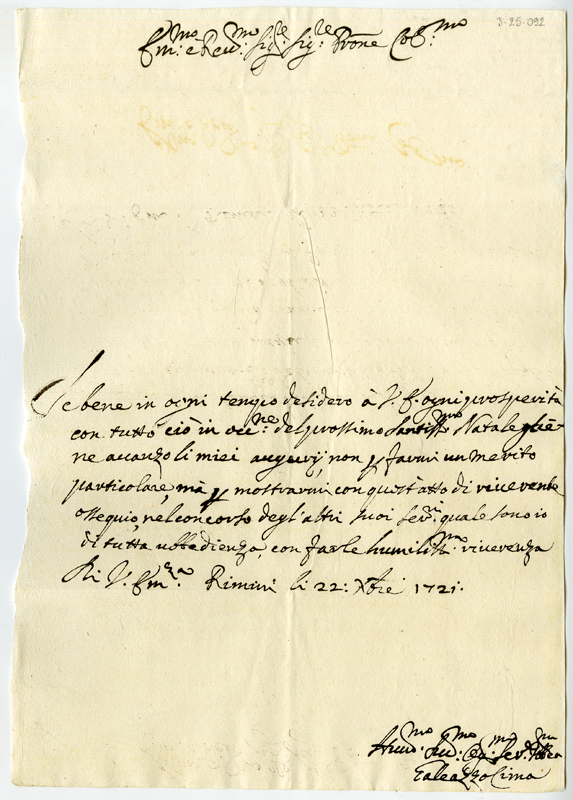 3-25-092
Em:mo e Rev:mo Sig:re Sig:re Prōne Col:mo
Se bene in ogni tempo desidero à V: E: ogni prosperità
con tutto ciò in occ:ne del prossimo Santiss:mo Natale gliē-
ne avanzo li miei augurij non p farmi un merito
particolare, mà p mostrarmi con quest'atto di riverente
ossequio, nel concorso degl'altri suoi Ser:ri quale sono io
di tutta ubbedienza, con farle humiliss:mo riverenza
Di V: Em:za Rimini li 22: Xbre 1721.
Hum:mo Dev:mo Ob:mo Ser:
Galeazzo Cima